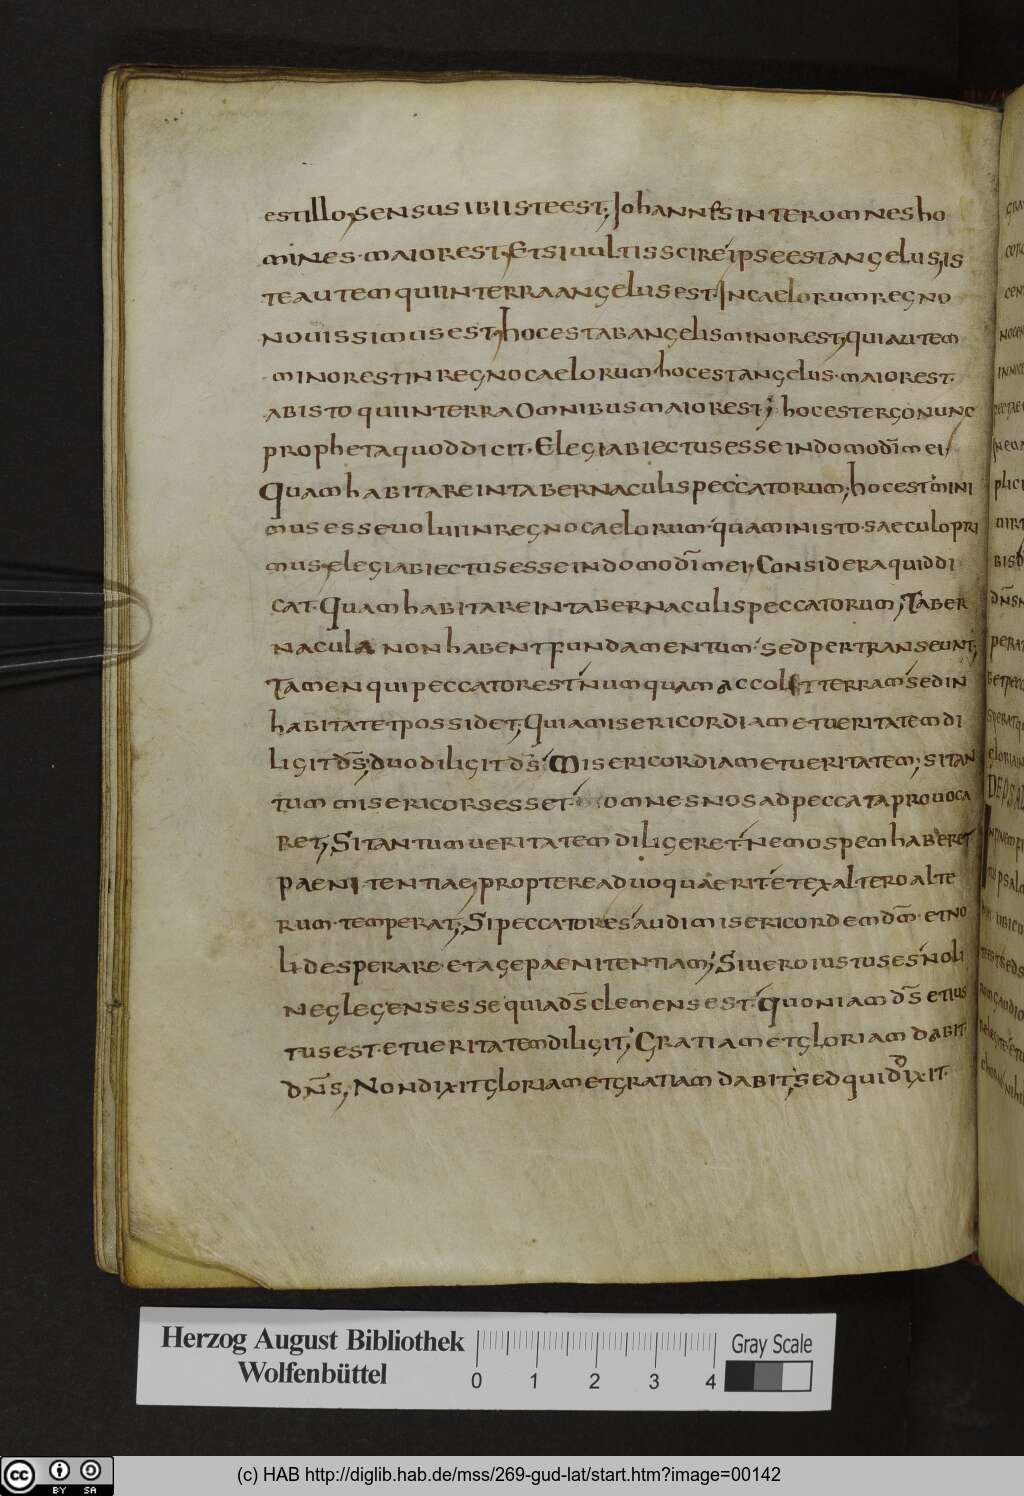 est illo, sensus ibi iste est; Johannes inter omnes ho
mines maior est, Et si vultis scire ipse est angelus, is
te autem qui in terra angelus est. In caelorum regno
novissimus est, hoc est ab angelis minor est, qui autem
minor est in regno caelorum hoc est angelus maior est.
ab isto qui in terra omnibus maior est; hoc est ergo nunc
propheta quod dicit. Elegi abiectus esse in domo dī mei
Quam habitare in tabernaculis peccatorum; hoc est mini
mus esse volui in regno caelorum quam in isto saeculo pri
mus, elegi abiectus esse in domo dī mei, Considera quid di
cat. Quam habitare in tabernaculis peccatorum, Taber
nacula non habent fundamentum sed pertranseunt;
Tamen qui peccator est numquam accolet terram sed in
habitat et possidet, Quia misericordiam et veritatem di
ligit dn̄s; duo diligit dn̄s Misericordiam et veritatem; si tan
tum misericors esset omnes nos ad peccata provoca
ret, Si tantum veritatem diligeret nemo spem haberet
paenitentiae, propterea duo quaerit et ex altero alte
rum temperat; Si peccator es audi misericordem dn̄m et no
li desperare et age paenitentiam; Si vero iustus es noli
neglegens esse quia dn̄s clemens est. Quoniam dn̄s et ius
tus est et veritatem diligit; Gratiam et gloriam dabit
dn̄s, Non dixit gloriam et gratiam dabit, sed quid dixit.
Herzog August Bibliothek
Wolfenbüttel
0 1 2 3 4
Gray Scale
cc BY SA
(c) HAB http://diglib.hab.de/mss/269-gud-lat/start.htm?image=00142